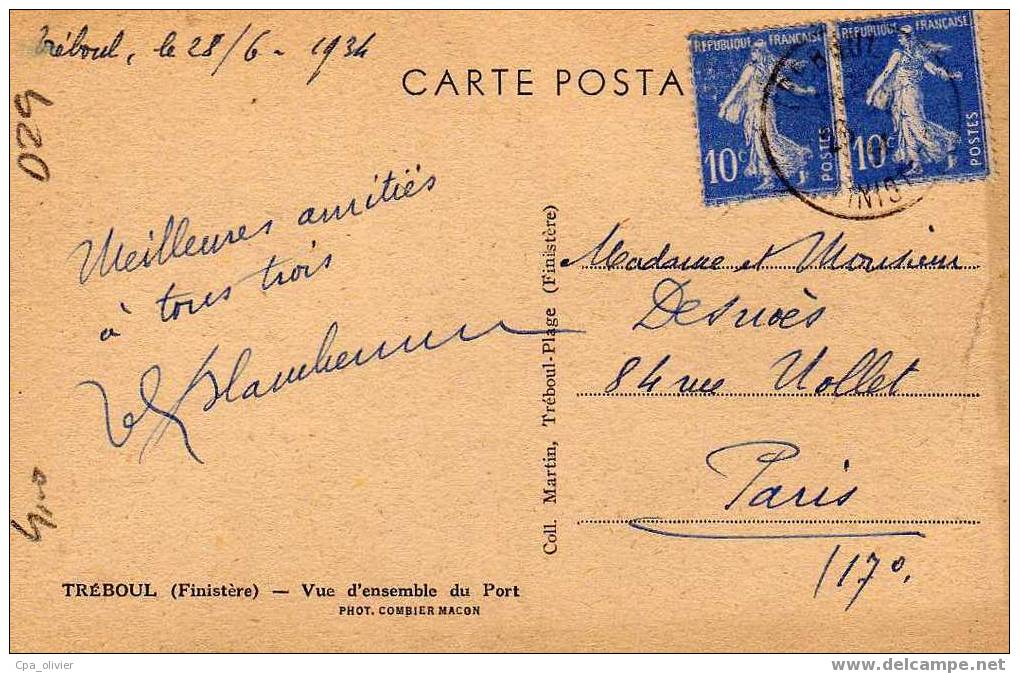 Tréboul, le 28/6 - 1934
CARTE POSTA
RÉPUBLIQUE FRANÇAISE
10c
POSTES
RÉPUBLIQUE FRANÇAISE
10c
POSTES
029
Meilleures amitiés
à tous trois
Coll. Martin, Tréboul-Plage (Finistère)
Madame et Monsieur
84 rue Nollet
Paris
(17°.
TRÉBOUL (Finistère) — Vue d'ensemble du Port
PHOT. COMBIER MACON
Cpa_olivier
www.delcampe.net